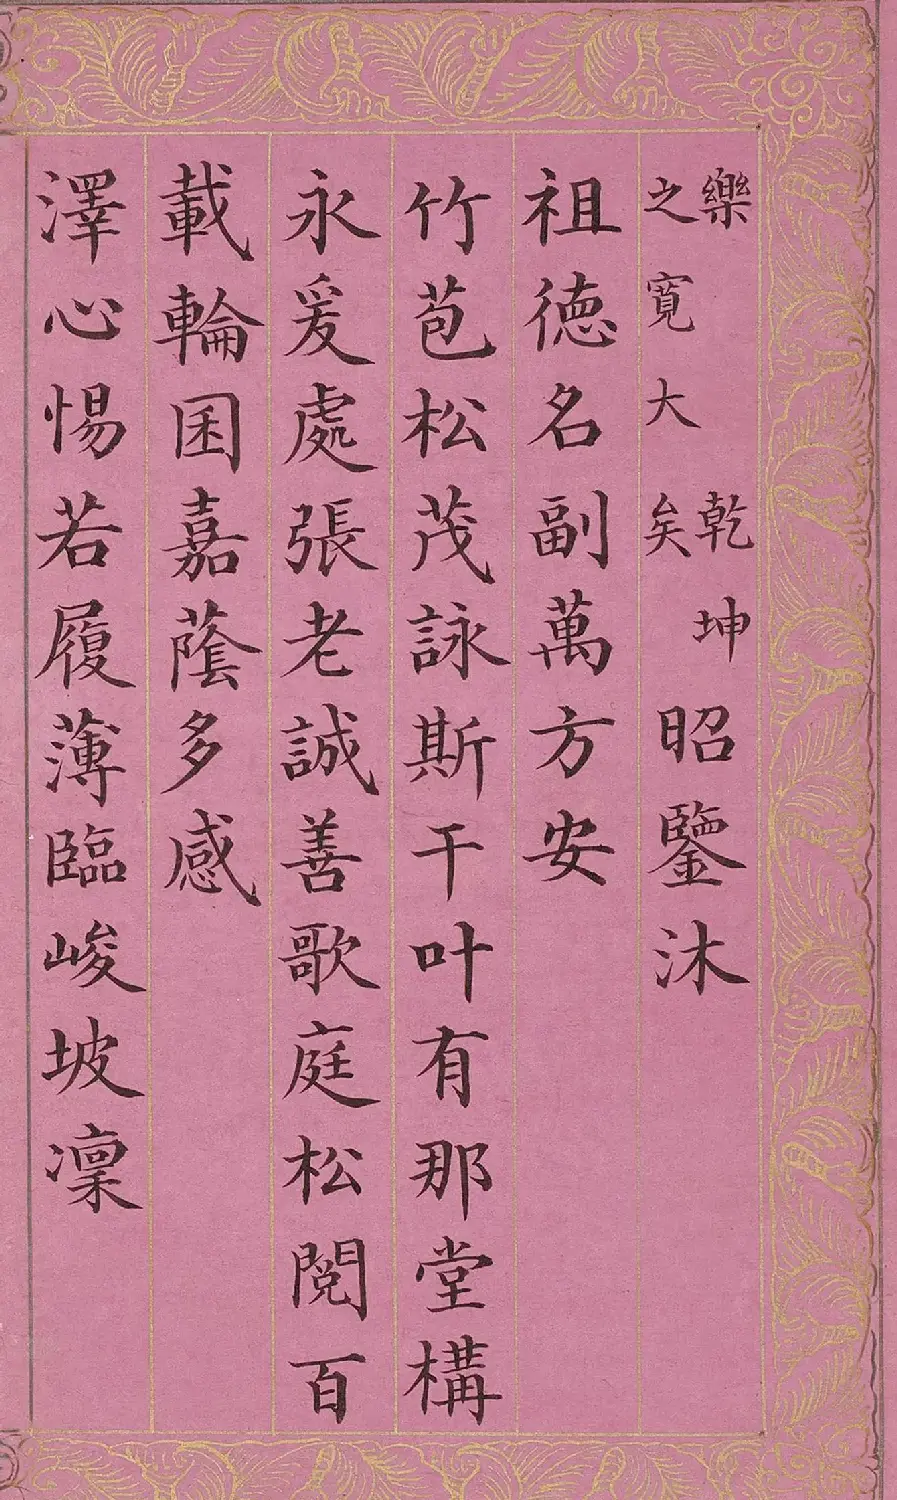 樂乾坤
之寬大矣
昭鑒沐
祖徳名副萬方安
竹苞松茂詠斯干叶有那堂構
永爰處張老誠善歌庭松閱百
載輪囷嘉蔭多感
澤心惕若履薄臨峻坡凜